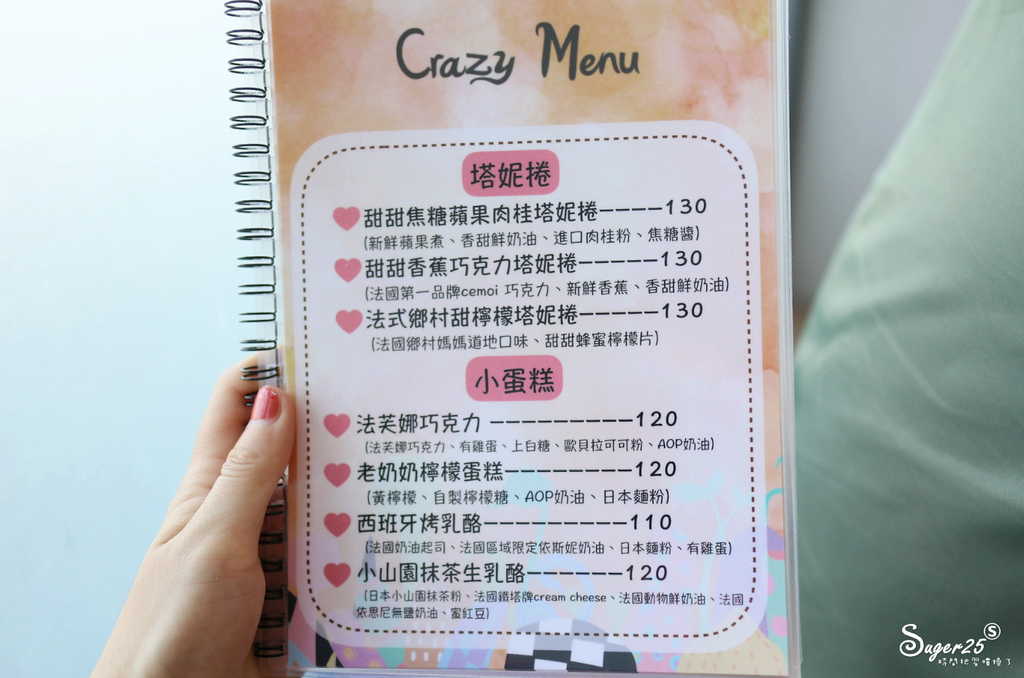 Crazy Menu
塔妮捲
甜甜焦糖蘋果肉桂塔妮捲----130
(新鮮蘋果煮、香甜鮮奶油、進口肉桂粉、焦糖醬)
甜甜香蕉巧克力塔妮捲-----130
(法國第一品牌cemoi 巧克力、新鮮香蕉、香甜鮮奶油)
法式鄉村甜檸檬塔妮捲-----130
(法國鄉村媽媽道地口味、甜甜蜂蜜檸檬片)
小蛋糕
法芙娜巧克力 ---------120
(法芙娜巧克力、有雞蛋、上白糖、歐貝拉可可粉、AOP奶油)
老奶奶檸檬蛋糕--------120
(黃檸檬、自製檸檬糖、AOP奶油、日本麵粉)
西班牙烤乳酪---------110
(法國奶油起司、法國區域限定依斯妮奶油、日本麵粉、有雞蛋)
小山園抹茶生乳酪------120
(日本小山園抹茶粉、法國鐵塔牌cream cheese、法國動物鮮奶油、法國
依思尼無鹽奶油、蜜紅豆)
Suger25 S
時間把習慣換了